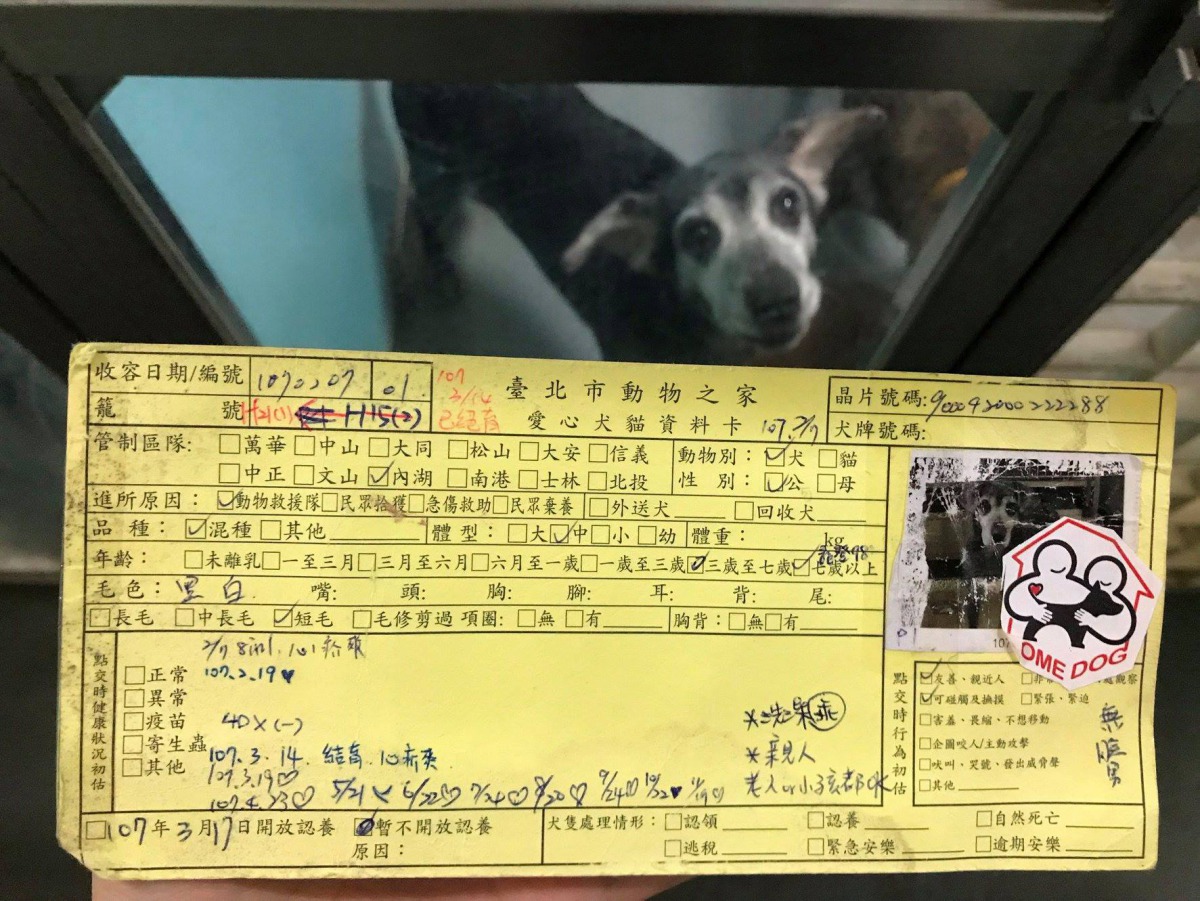 收容日期/編號 1070207 01. 107
籠 號 H21(1) H15(2) 2/14 已絕育
臺北市動物之家
愛心犬貓資料卡
晶片號碼:900092000222288
犬牌號碼:
管制區隊: □萬華 □中山 □大同 □松山 □大安 □信義
□中正 □文山 ☑內湖 □南港 □士林 □北投
動物別: ☑犬 □貓
性 別: ☑公 □母
進所原因: ☑動物救援隊 □民眾拾獲 □急傷救助 □民眾棄養 □外送犬 □回收犬
品 種: ☑混種 □其他 體 型: □大 ☑中 □小 □幼 體重: kg
年齡: □未離乳 □一至三月 □三月至六月 □六月至一歲 □一歲至三歲 ☑三歲至七歲 ☑七歲以上
毛 色: 黑白 嘴: 頭: 胸: 腳: 耳: 背: 尾:
□長毛 □中長毛 ☑短毛 □毛修剪過 項圈: □無 □有 胸背: □無 □有
點交時健康狀況初估
□正常 107.2.19♥
□異常
□疫苗 4DX(-)
□寄生蟲 107.3.14.
□其他 107.3.19♡
107.4.23♡ 5/21 6/22♡ 7/24♡ 8/20♡ 9/24♡ 10/22♥
*親人
老人or小孩都OK
OME DOG
點交時行為初估
☑友善、親近人
☑可碰觸及撫摸 □緊張、緊迫
□害羞、畏縮、不想移動
□企圖咬人/主動攻擊
□吠叫、哭號、發出威脅聲
□其他
□107年3月17日開放認養 ☑暫不開放認養
原因:
犬隻處理情形: □認領 □認養 □自然死亡
□逃脫 □緊急安樂 □逾期安樂